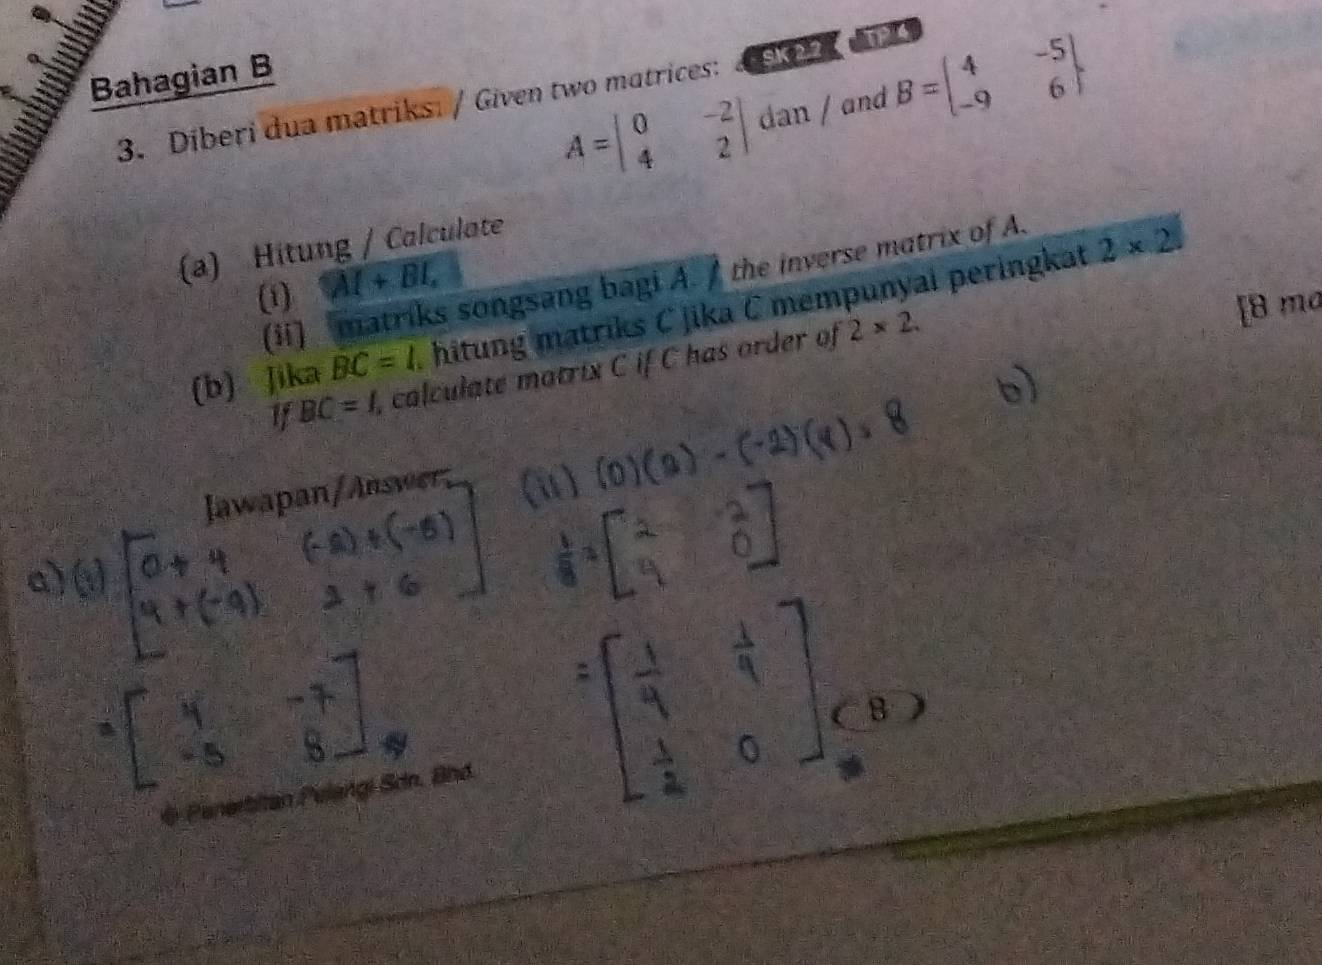 Bahagian B
3. Diberi dua matriks: / Given two matrices: SK 2.2 TP 4
A = [0 -2
4 2] dan / and B = [4 -5
-9 6]
(a) Hitung / Calculate
(i) AI + BI,
(ii) matriks songsang bagi A. / the inverse matrix of A.
(b) Jika BC = I, hitung matriks C jika C mempunyai peringkat 2 × 2.
If BC = I, calculate matrix C if C has order of 2 × 2.
[8 ma
Jawapan/Answer:
a) (i) [0 + 4 (-2) + (-5)
4 + (-9) 2 + 6]
= [4 -7
-5 8]
(ii) (0)(2) - (-2)(4) = 8
1/8 = [2 2
4 0]
= [1/4 1/4
1/2 0]
( B )
b)
© Penerbitan Pelangi Sdn. Bhd.